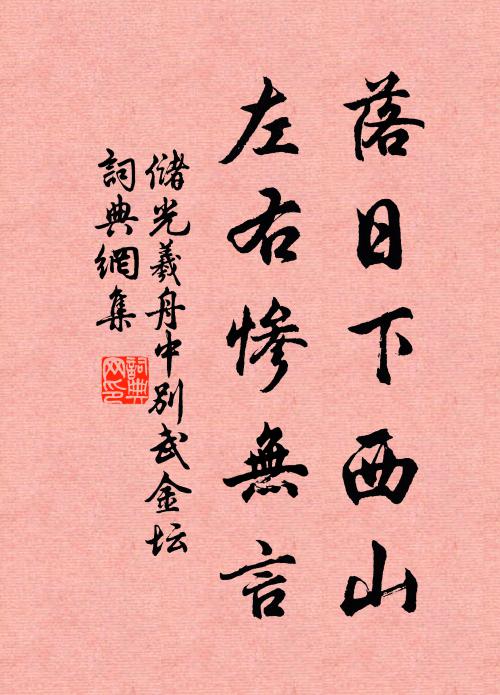 落日下西山
左右慘無言
儲光羲舟中別武金坛
詞典網集
詞典网印